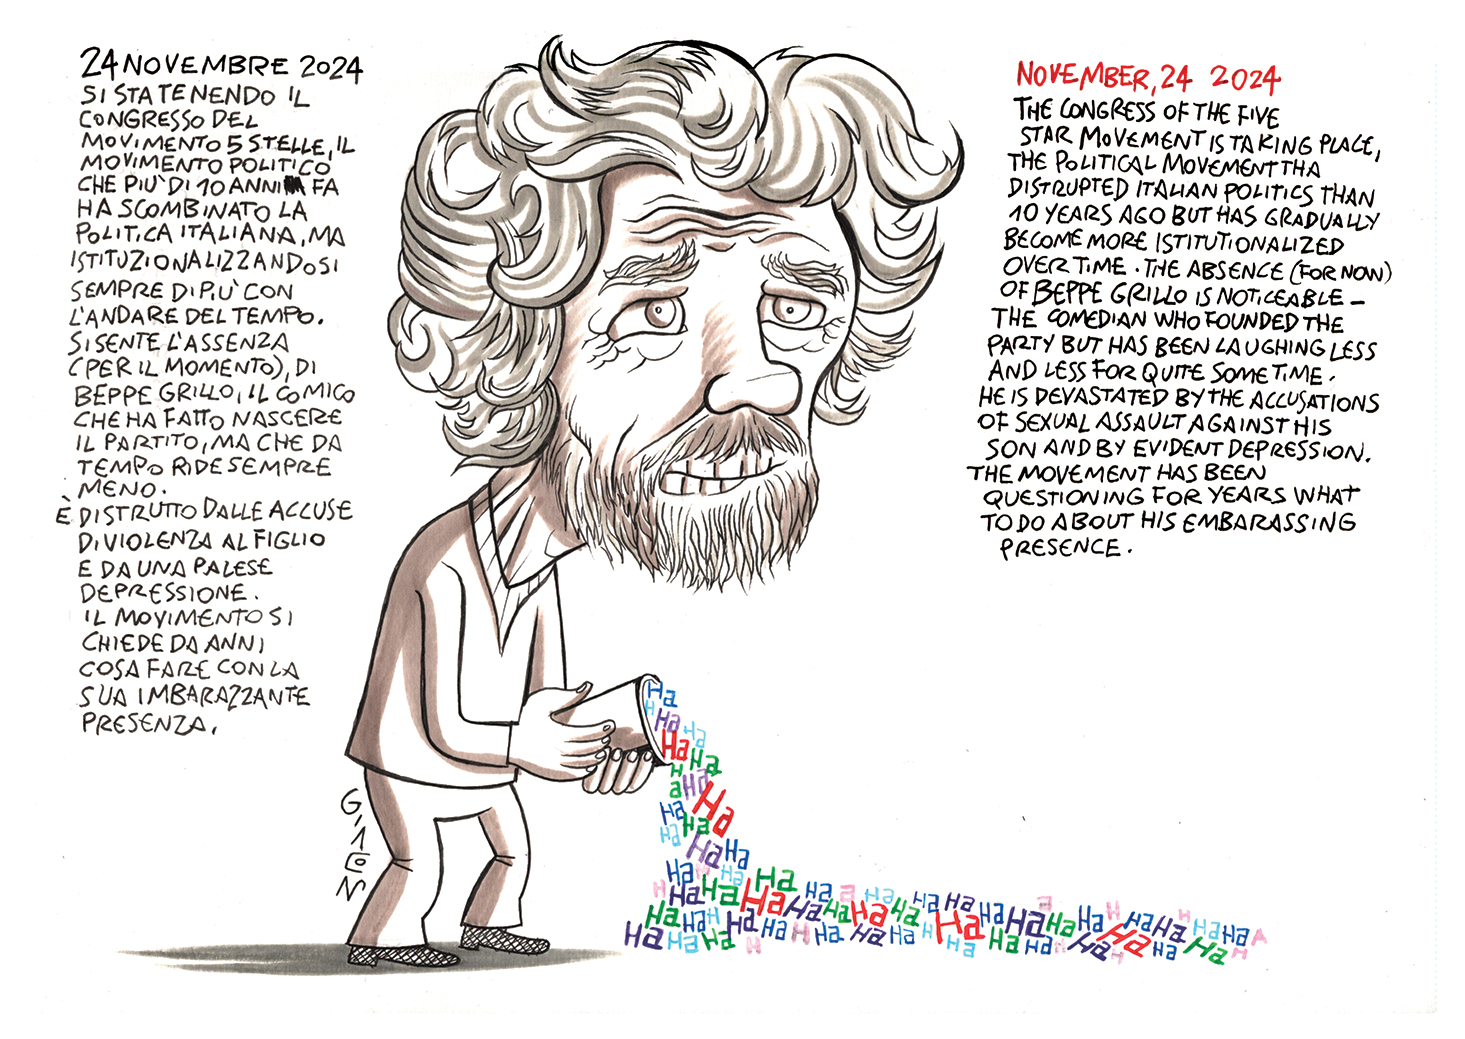 24 NOVEMBRE 2024
SI STA TENENDO IL
CONGRESSO DEL
MOVIMENTO 5 STELLE, IL
MOVIMENTO POLITICO
CHE PIU' DI 10 ANNI FA
HA SCOMBINATO LA
POLITICA ITALIANA, MA
ISTITUZIONALIZZANDOSI
SEMPRE DI PIU' CON
L'ANDARE DEL TEMPO.
SI SENTE L'ASSENZA
(PER IL MOMENTO), DI
BEPPE GRILLO, IL COMICO
CHE HA FATTO NASCERE
IL PARTITO, MA CHE DA
TEMPO RIDE SEMPRE
MENO.
È DISTRUTTO DALLE ACCUSE
DI VIOLENZA AL FIGLIO
E DA UNA PALESE
DEPRESSIONE.
IL MOVIMENTO SI
CHIEDE DA ANNI
COSA FARE CON LA
SUA IMBARAZZANTE
PRESENZA.
NOVEMBER, 24 2024
THE CONGRESS OF THE FIVE
STAR MOVEMENT IS TAKING PLACE,
THE POLITICAL MOVEMENT THA
DISTRUPTED ITALIAN POLITICS THAN
10 YEARS AGO BUT HAS GRADUALLY
BECOME MORE ISTITUTIONALIZED
OVER TIME. THE ABSENCE (FOR NOW)
OF BEPPE GRILLO IS NOTICEABLE –
THE COMEDIAN WHO FOUNDED THE
PARTY BUT HAS BEEN LAUGHING LESS
AND LESS FOR QUITE SOME TIME.
HE IS DEVASTATED BY THE ACCUSATIONS
OF SEXUAL ASSAULT AGAINST HIS
SON AND BY EVIDENT DEPRESSION.
THE MOVEMENT HAS BEEN
QUESTIONING FOR YEARS WHAT
TO DO ABOUT HIS EMBARASSING
PRESENCE.
Ha
Ha
Ha Ha
Ha
Ha
Ha
Ha
Ha
Ha Ha
Ha Ha Ha
Ha Ha Ha Ha Ha Ha Ha Ha Ha Ha Ha Ha Ha Ha
Ha Ha Ha Ha Ha Ha Ha Ha Ha Ha Ha Ha
G,1CON